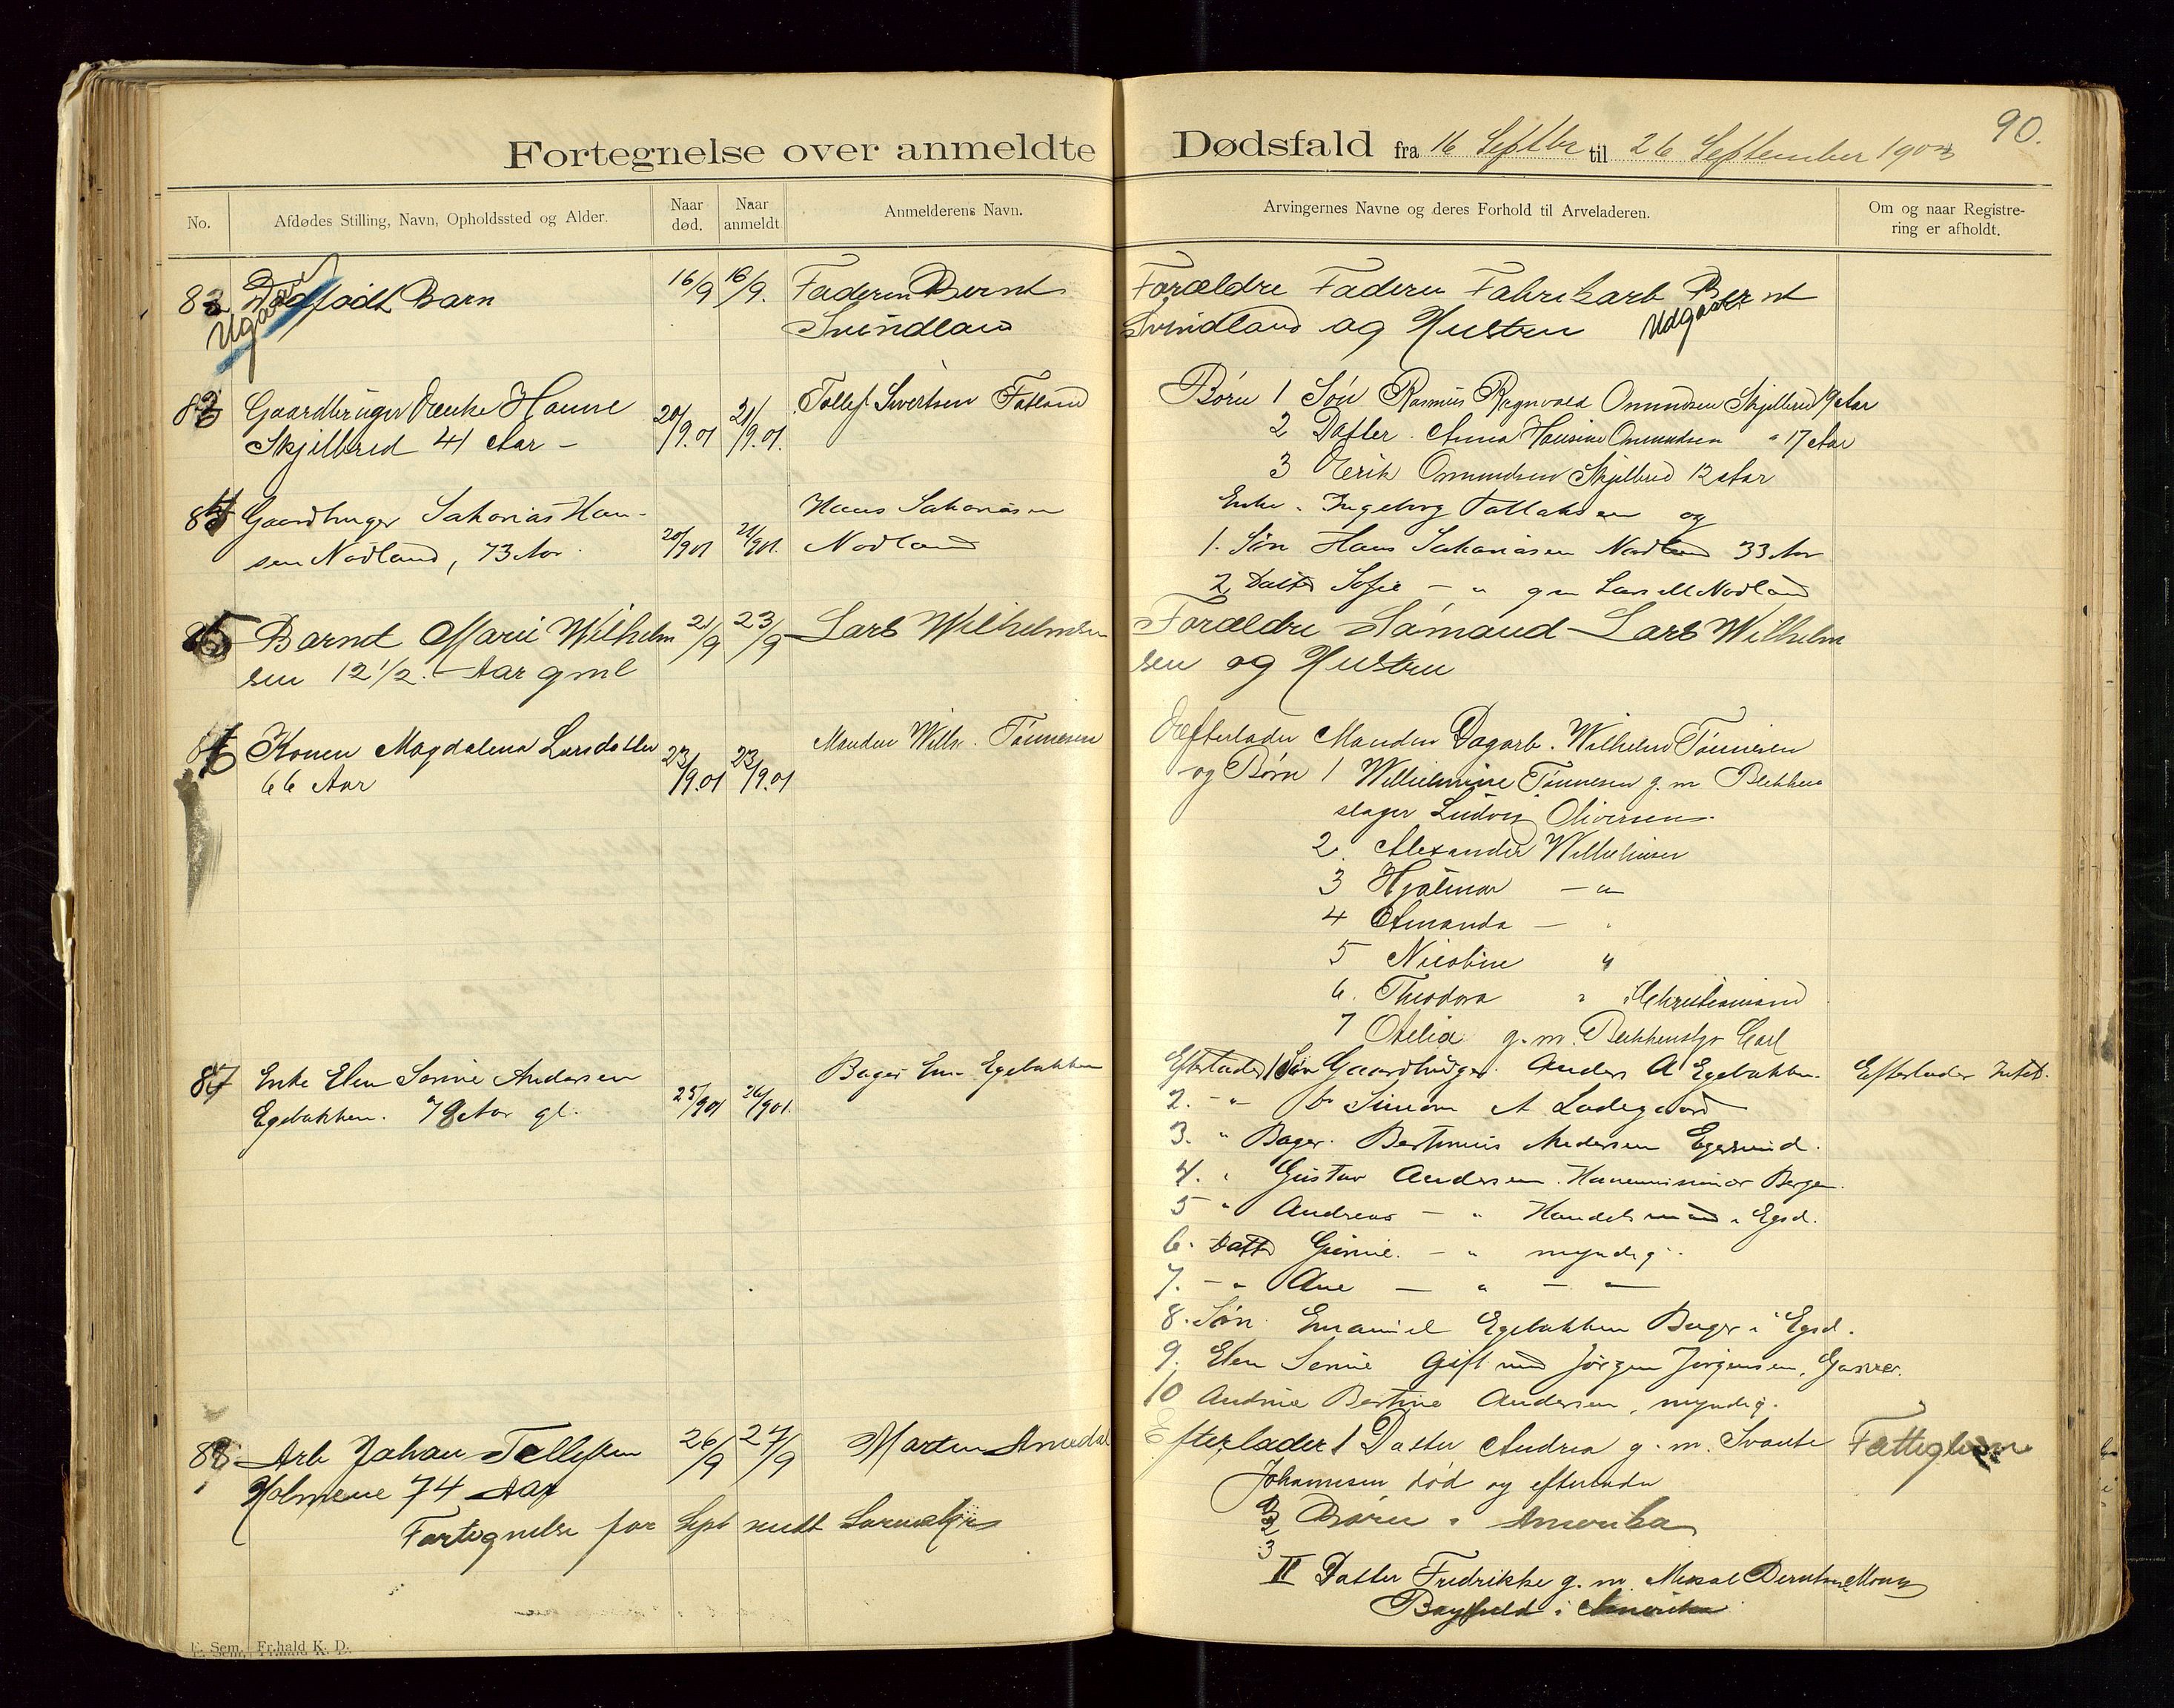 Fortegnelse over anmeldte Dødsfald fra 16 Septbr til 26 September 190
90.
No.
Afdødes Stilling, Navn, Opholdssted og Alder.
Naar død.
Naar anmeldt
Anmelderens Navn.
Arvingernes Navne og deres Forhold til Arveladeren.
Om og naar Registrering er afholdt.
Dødfødt Barn
16/9 16/9.
Faderen Bernt
Svindland
Forældre Faderen Fabrikarb Bernt
Svindland og Hustru Udgaar
83 Gaardbruger Enke Hanne
Skjelbred 41 Aar -
20/9.01 21/9.01.
Tollef Sivertsen Fotland
Børn 1 Søn Rasmus Regnvald Omundsen Skjelbred 19 Aar
2 Datter. Anna Hansine Omundsen " 17 Aar
3 Erik Omundsen Skjelbred 12 Aar
84 Gaardbruger Sakarias Han-
sen Nodland, 73 Aar.
20/901 21/901.
Hans Sakariasen
Nodland
Enke. Ingeborg og
1. Søn Hans Sakariasen Nodland 33 Aar
2 Datter Sofie - " gm Lars M Nodland
85 Barnet Marie Wilhelm
sen 12 1/2. Aar gml
21/9 23/9
Lars Wilhelmsen
Forældre Sømand Lars Wilhelm
sen og Hustru
86 Konen Magdalena Larsdatter
66 Aar
23/9.01 23/9.01
Manden Wilh. Tønnesen
Efterlader Manden Dagarb. Wilhelm Tønnesen
og Børn 1 Wilhelmine Tønnesen g. m Blikken
slager Ludvig Oliversen.
2. Alexander Wilhelmsen
3 Hjalmar - "
4 Amanda -
5 Nicoline "
6. Theodora " i Christiansand
7 Otelia g. m. Blikkenslgr Carl
87 Enke Elen Serine Andersen
Egebakken. 78 Aar gl.
25/901 26/901.
Bager Em. Egebakken
Efterlader 1 Søn Gaardbruger. Anders A Egebakken.
Efterlader Intet.
2. - " Simon A Ladegaard
3. " Bager. Bertinius Andersen Egersund.
4. " Gustav Andersen. Bergen.
5 " Andreas - " Handelsmand i Egsd.
6. Datter Gurine. - " myndig.
7. - " Ane - " - "
8. Søn. Emanuel Egebakken Bager i Egsd.
9. Elen Serine Gift med Jørgen Jørgensen,
10 Andrine Bertine Andersen, myndig.
88 Arb Johan Tollefsen
Holmene 74 Aar
26/9 27/9
Morten Aarsdal
Efterlader 1 Datter Andrea g. m. Svante
Johannesen død og efterlader
3 Børn i Amerika
II Datter Fredrikke g. m.
Bayfield i Amerika
Fortegnelse for Sept sendt Sorenskr
E. Sem, Fr.hald K. D.